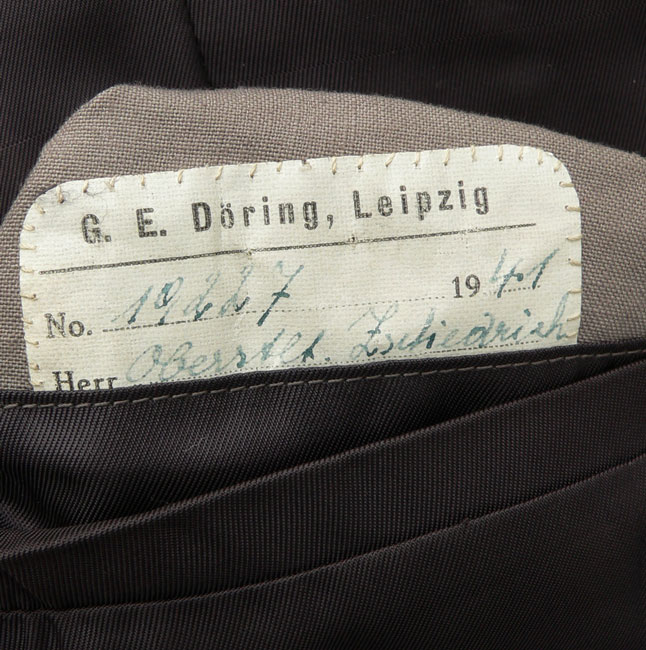 G. E. Döring, Leipzig
No. 19227 1941
Herr Oberstlt. Zschiedrich